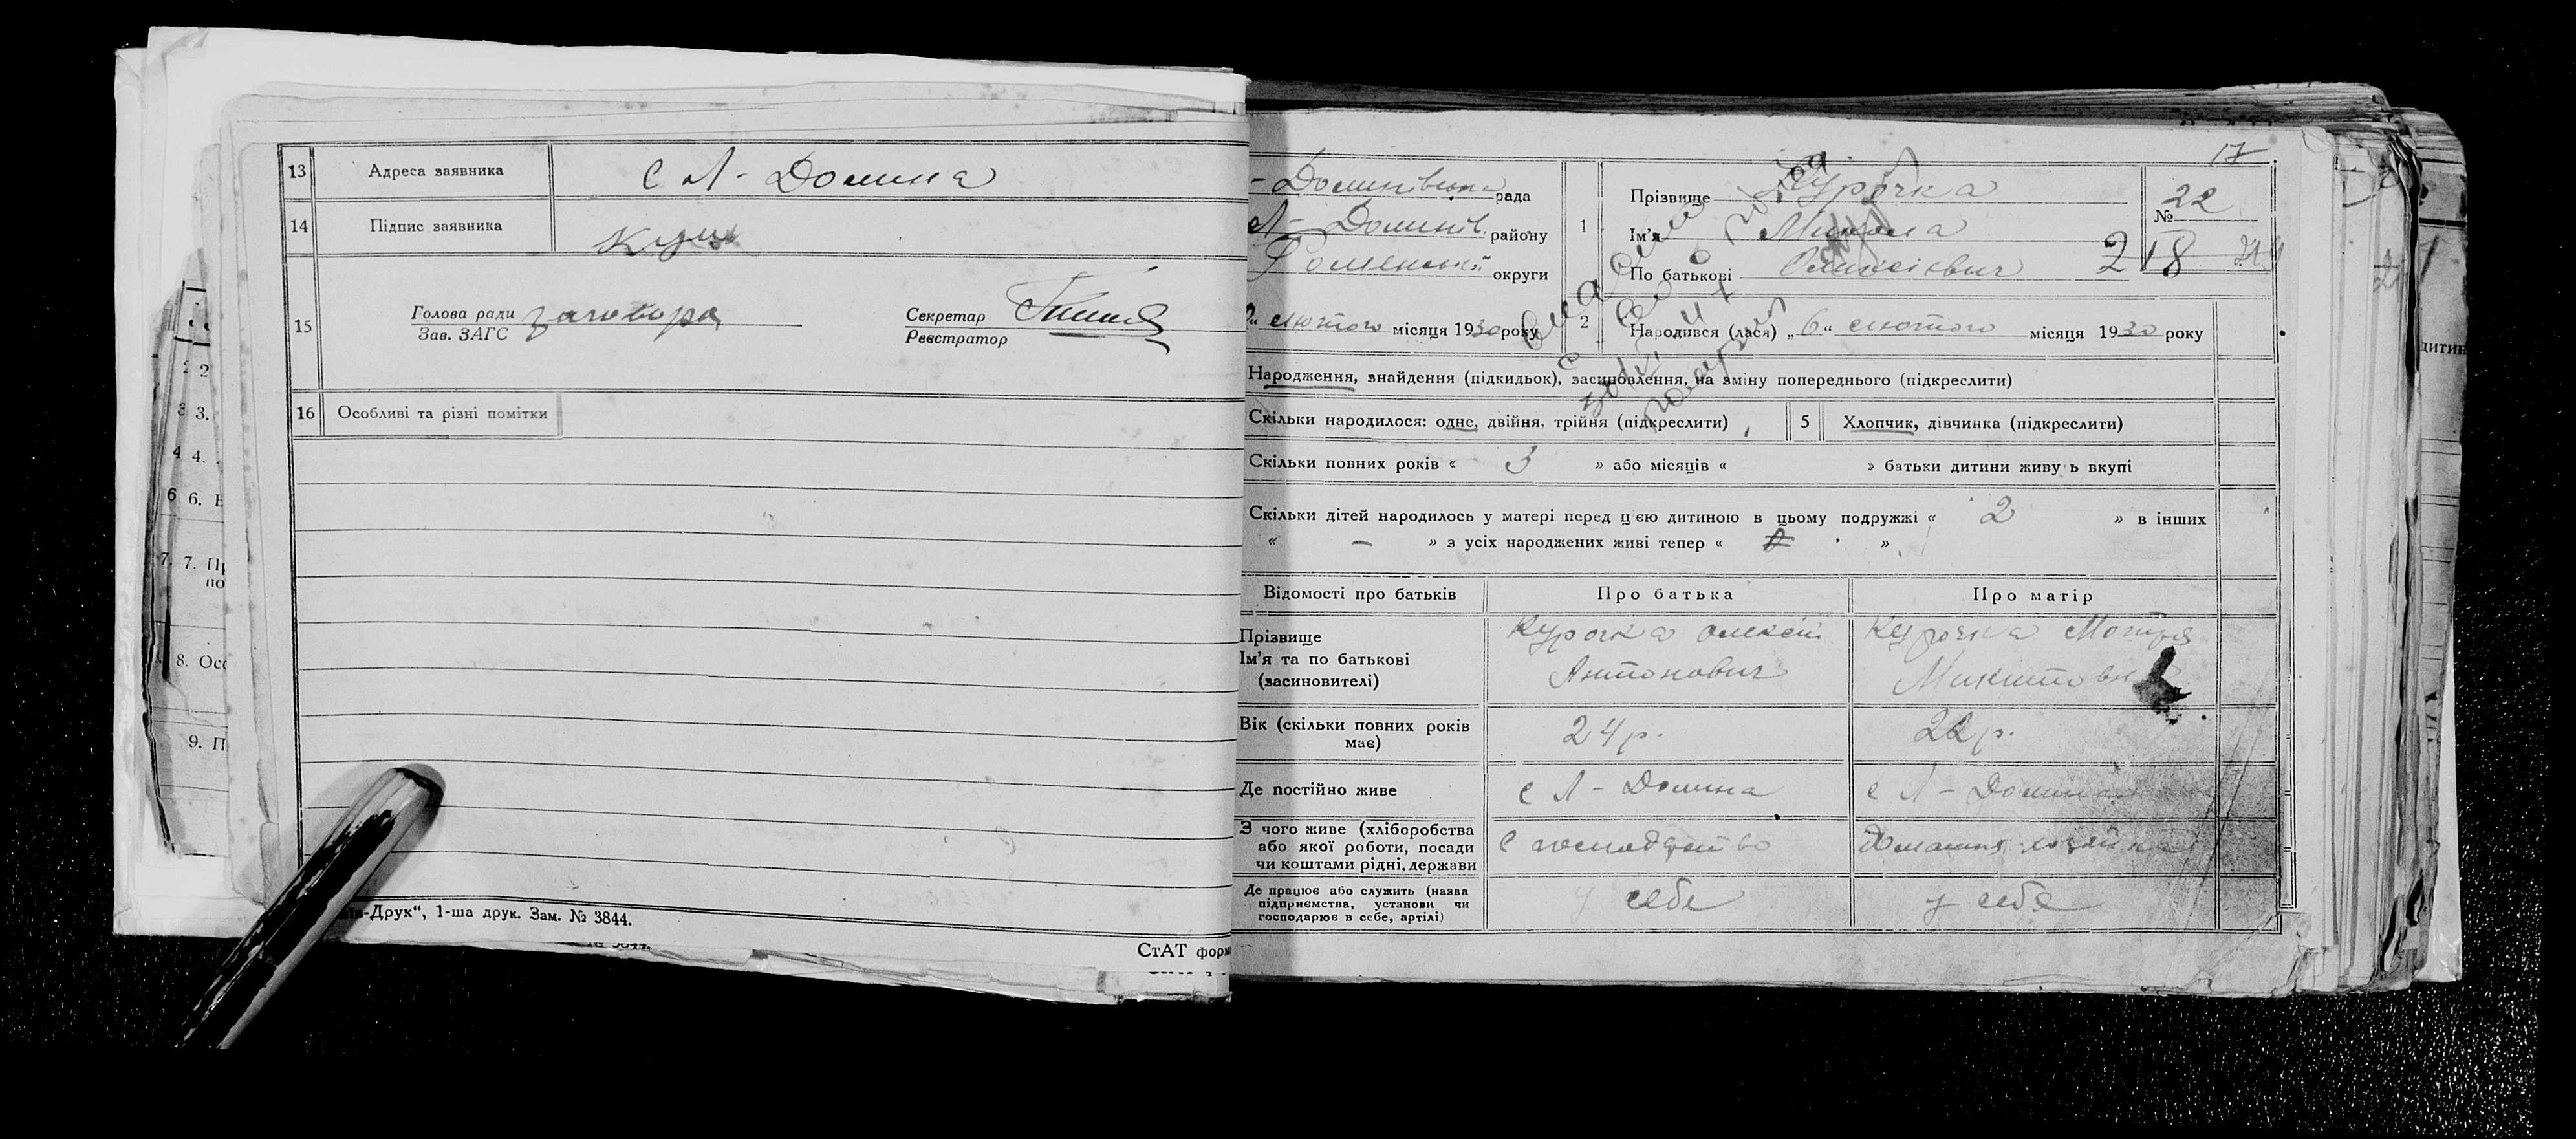 13 Адреса заявника с Л - Долина
14 Підпис заявника
15 Голова ради
Зав. ЗАГС
Секретар
Реєстратор
16 Особливі та різні помітки
-Друк“, 1-ша друк. Зам. № 3844.
СтАТ форм
17
- Долинівська рада
Л - Долинів. району
Роменської округи
“ лютого місяця 1930 року
1 Прізвище Курочка
Ім'я Микола
По батькові Олексієвич
№ 22
218
2 Народився (лася) „ 6 “ лютого місяця 1930 року
Народження, знайдення (підкидьок), засиновлення, на зміну попереднього (підкреслити)
Скільки народилося: одне, двійня, трійня (підкреслити)
5 Хлопчик, дівчинка (підкреслити)
Скільки повних років « 3 » або місяців « » батьки дитини живу ь вкупі
Скільки дітей народилось у матері перед цією дитиною в цьому подружжі « 2 » в інших
« — » з усіх народжених живі тепер « »
Відомості про батьків Про батька Про матір
Прізвище Курочка Олексій Курочка Мотря
Ім'я та по батькові Антонович Микитовн
(засиновителі)
Вік (скільки повних років має) 24 р. 22 р.
Де постійно живе с Л - Долина с Л - Долина
З чого живе (хліборобства
або якої роботи, посади
чи коштами рідні, держави
Де працює або служить (назва
підприємства, установи чи
господарює в себе, артілі)
у себе у себе